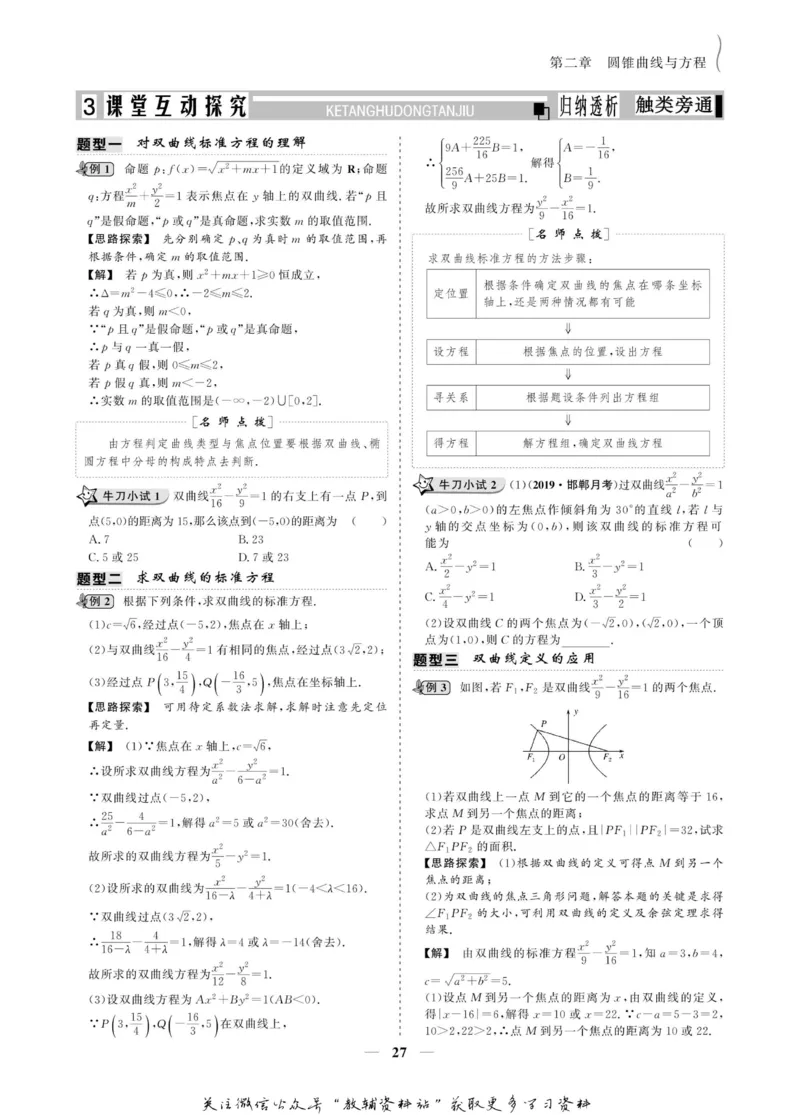 第二章 圆锥曲线与方程
3 课堂互动探究
KETANGHUDONGTANJIU
归纳透析 触类旁通
题型一 对双曲线标准方程的理解
例1 命题 p:f(x)=√(x²+mx+1)的定义域为 R;命题
q:方程x²/m+y²/2=1表示焦点在 y轴上的双曲线.若“p且
q”是假命题,“p或q”是真命题,求实数m的取值范围.
【思路探索】 先分别确定 p、q为真时m的取值范围,再
根据条件,确定m的取值范围.
【解】 若p为真,则x²+mx+1≥0恒成立,
∴Δ=m²-4≤0,∴-2≤m≤2.
若q为真,则m<0,
∵“p且q”是假命题,“p或q”是真命题,
∴p与q一真一假,
若p真q假,则0≤m≤2,
若p假q真,则m<-2,
∴实数m的取值范围是(-∞,-2)∪[0,2].
[名师点拨]
由方程判定曲线类型与焦点位置要根据双曲线、椭
圆方程中分母的构成特点去判断.
牛刀小试1 双曲线x²/16-y²/9=1的右支上有一点P,到
点(5,0)的距离为15,那么该点到(-5,0)的距离为 ( )
A.7 B.23
C.5或25 D.7或23
题型二 求双曲线的标准方程
例2 根据下列条件,求双曲线的标准方程.
(1)c=√6,经过点(-5,2),焦点在x轴上;
(2)与双曲线x²/16-y²/4=1有相同的焦点,经过点(3√2,2);
(3)经过点P(3,15/4),Q(-16/3,5),焦点在坐标轴上.
【思路探索】 可用待定系数法求解,求解时注意先定位
再定量.
【解】 (1)∵焦点在x轴上,c=√6,
∴设所求双曲线方程为x²/a²-y²/(6-a²)=1.
∵双曲线过点(-5,2),
∴25/a²-4/(6-a²)=1,解得a²=5或a²=30(舍去).
故所求的双曲线方程为x²/5-y²=1.
(2)设所求的双曲线为x²/(16-λ)-y²/(4+λ)=1(-4<λ<16).
∵双曲线过点(3√2,2),
∴18/(16-λ)-4/(4+λ)=1,解得λ=4或λ=-14(舍去).
故所求的双曲线方程为x²/12-y²/8=1.
(3)设双曲线方程为Ax²+By²=1(AB<0).
∵P(3,15/4),Q(-16/3,5)在双曲线上,
∴{9A+225/16B=1, 256/9A+25B=1. 解得{A=-1/16, B=1/9.
故所求双曲线方程为y²/9-x²/16=1.
[名师点拨]
求双曲线标准方程的方法步骤:
定位置 根据条件确定双曲线的焦点在哪条坐标
轴上,还是两种情况都有可能
⇓
设方程 根据焦点的位置,设出方程
⇓
寻关系 根据题设条件列出方程组
⇓
得方程 解方程组,确定双曲线方程
牛刀小试2 (1)(2019·邯郸月考)过双曲线x²/a²-y²/b²=1
(a>0,b>0)的左焦点作倾斜角为30°的直线l,若l与
y轴的交点坐标为(0,b),则该双曲线的标准方程可
能为 ( )
A.x²/2-y²=1 B.x²/3-y²=1
C.x²/4-y²=1 D.x²/3-y²/2=1
(2)设双曲线C的两个焦点为(-√2,0),(√2,0),一个顶
点为(1,0),则C的方程为________.
题型三 双曲线定义的应用
例3 如图,若F₁,F₂是双曲线x²/9-y²/16=1的两个焦点.
y
P
F₁ O F₂ x
(1)若双曲线上一点M到它的一个焦点的距离等于16,
求点M到另一个焦点的距离;
(2)若P是双曲线左支上的点,且|PF₁||PF₂|=32,试求
△F₁PF₂的面积.
【思路探索】 (1)根据双曲线的定义可得点M到另一个
焦点的距离;
(2)为双曲线的焦点三角形问题,解答本题的关键是求得
∠F₁PF₂的大小,可利用双曲线的定义及余弦定理求得
结果.
【解】 由双曲线的标准方程x²/9-y²/16=1,知a=3,b=4,
c=√(a²+b²)=5.
(1)设点M到另一个焦点的距离为x,由双曲线的定义,
得|x-16|=6,解得x=10或x=22.∵c-a=5-3=2,
10>2,22>2,∴点M到另一个焦点的距离为10或22.
27
关注微信公众号“教辅资料站”获取更多学习资料